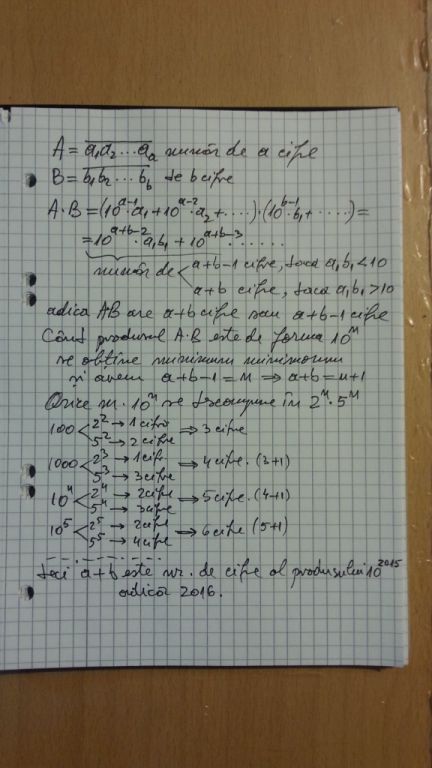 A = a₁a₂...aₐ număr de a cifre
B = b₁b₂...b_b de b cifre
A·B = (10^(a-1)·a₁ + 10^(a-2)·a₂ + ....)·(10^(b-1)·b₁ + ....) =
= 10^(a+b-2)·a₁b₁ + 10^(a+b-3)......
număr de < a+b-1 cifre, dacă a₁b₁ < 10
a+b cifre, dacă a₁b₁ > 10
adică AB are a+b cifre sau a+b-1 cifre
Când produsul A·B este de forma 10^n
se obține minimum
și avem a+b-1 = n ⇒ a+b = n+1
Orice nr. 10^n se descompune în 2^n·5^n
100 < 2² → 1 cifră ⇒ 3 cifre
5² → 2 cifre
1000 < 2³ → 1 cif ⇒ 4 cifre. (3+1)
5³ → 3 cifre
10⁴ < 2⁴ → 2 cifre ⇒ 5 cifre. (4+1)
5⁴ → 3 cifre
10⁵ < 2⁵ → 2 cifre ⇒ 6 cifre (5+1)
5⁵ → 4 cifre
deci a+b este nr. de cifre al produsului 10^2015
adică 2016.